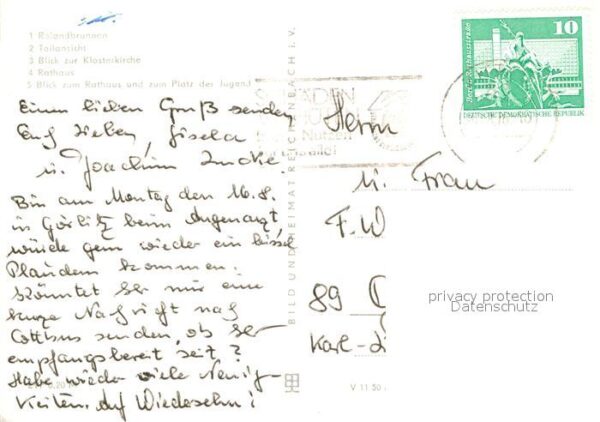 1 Rolandbrunnen
2 Teilansicht
3 Blick zur Klosterkirche
4 Rathaus
5 Blick zum Rathaus und zum Platz der Jugend
Einen lieben Gruß senden
Euch lieben, Gisela
u. Joachim
Bin am Montag den 16.8.
in Görlitz beim Augenarzt,
würde gern wieder ein bissel
Plaudern kommen.
Könntet Ihr mir eine
kurze Nachricht nach
Cottbus senden, ob Ihr
empfangsbereit seit?
Habe wieder viele Neuig-
keiten. Auf Wiedersehn!
BILD UND HEIMAT REICHENBACH i. V.
V 11 50
SCHADEN
Nutzen
10
Berlin, Rathausstraße
DEUTSCHE DEMOKRATISCHE REPUBLIK
Herrn
u. Frau
F. W
89
Karl-
privacy protection
Datenschutz